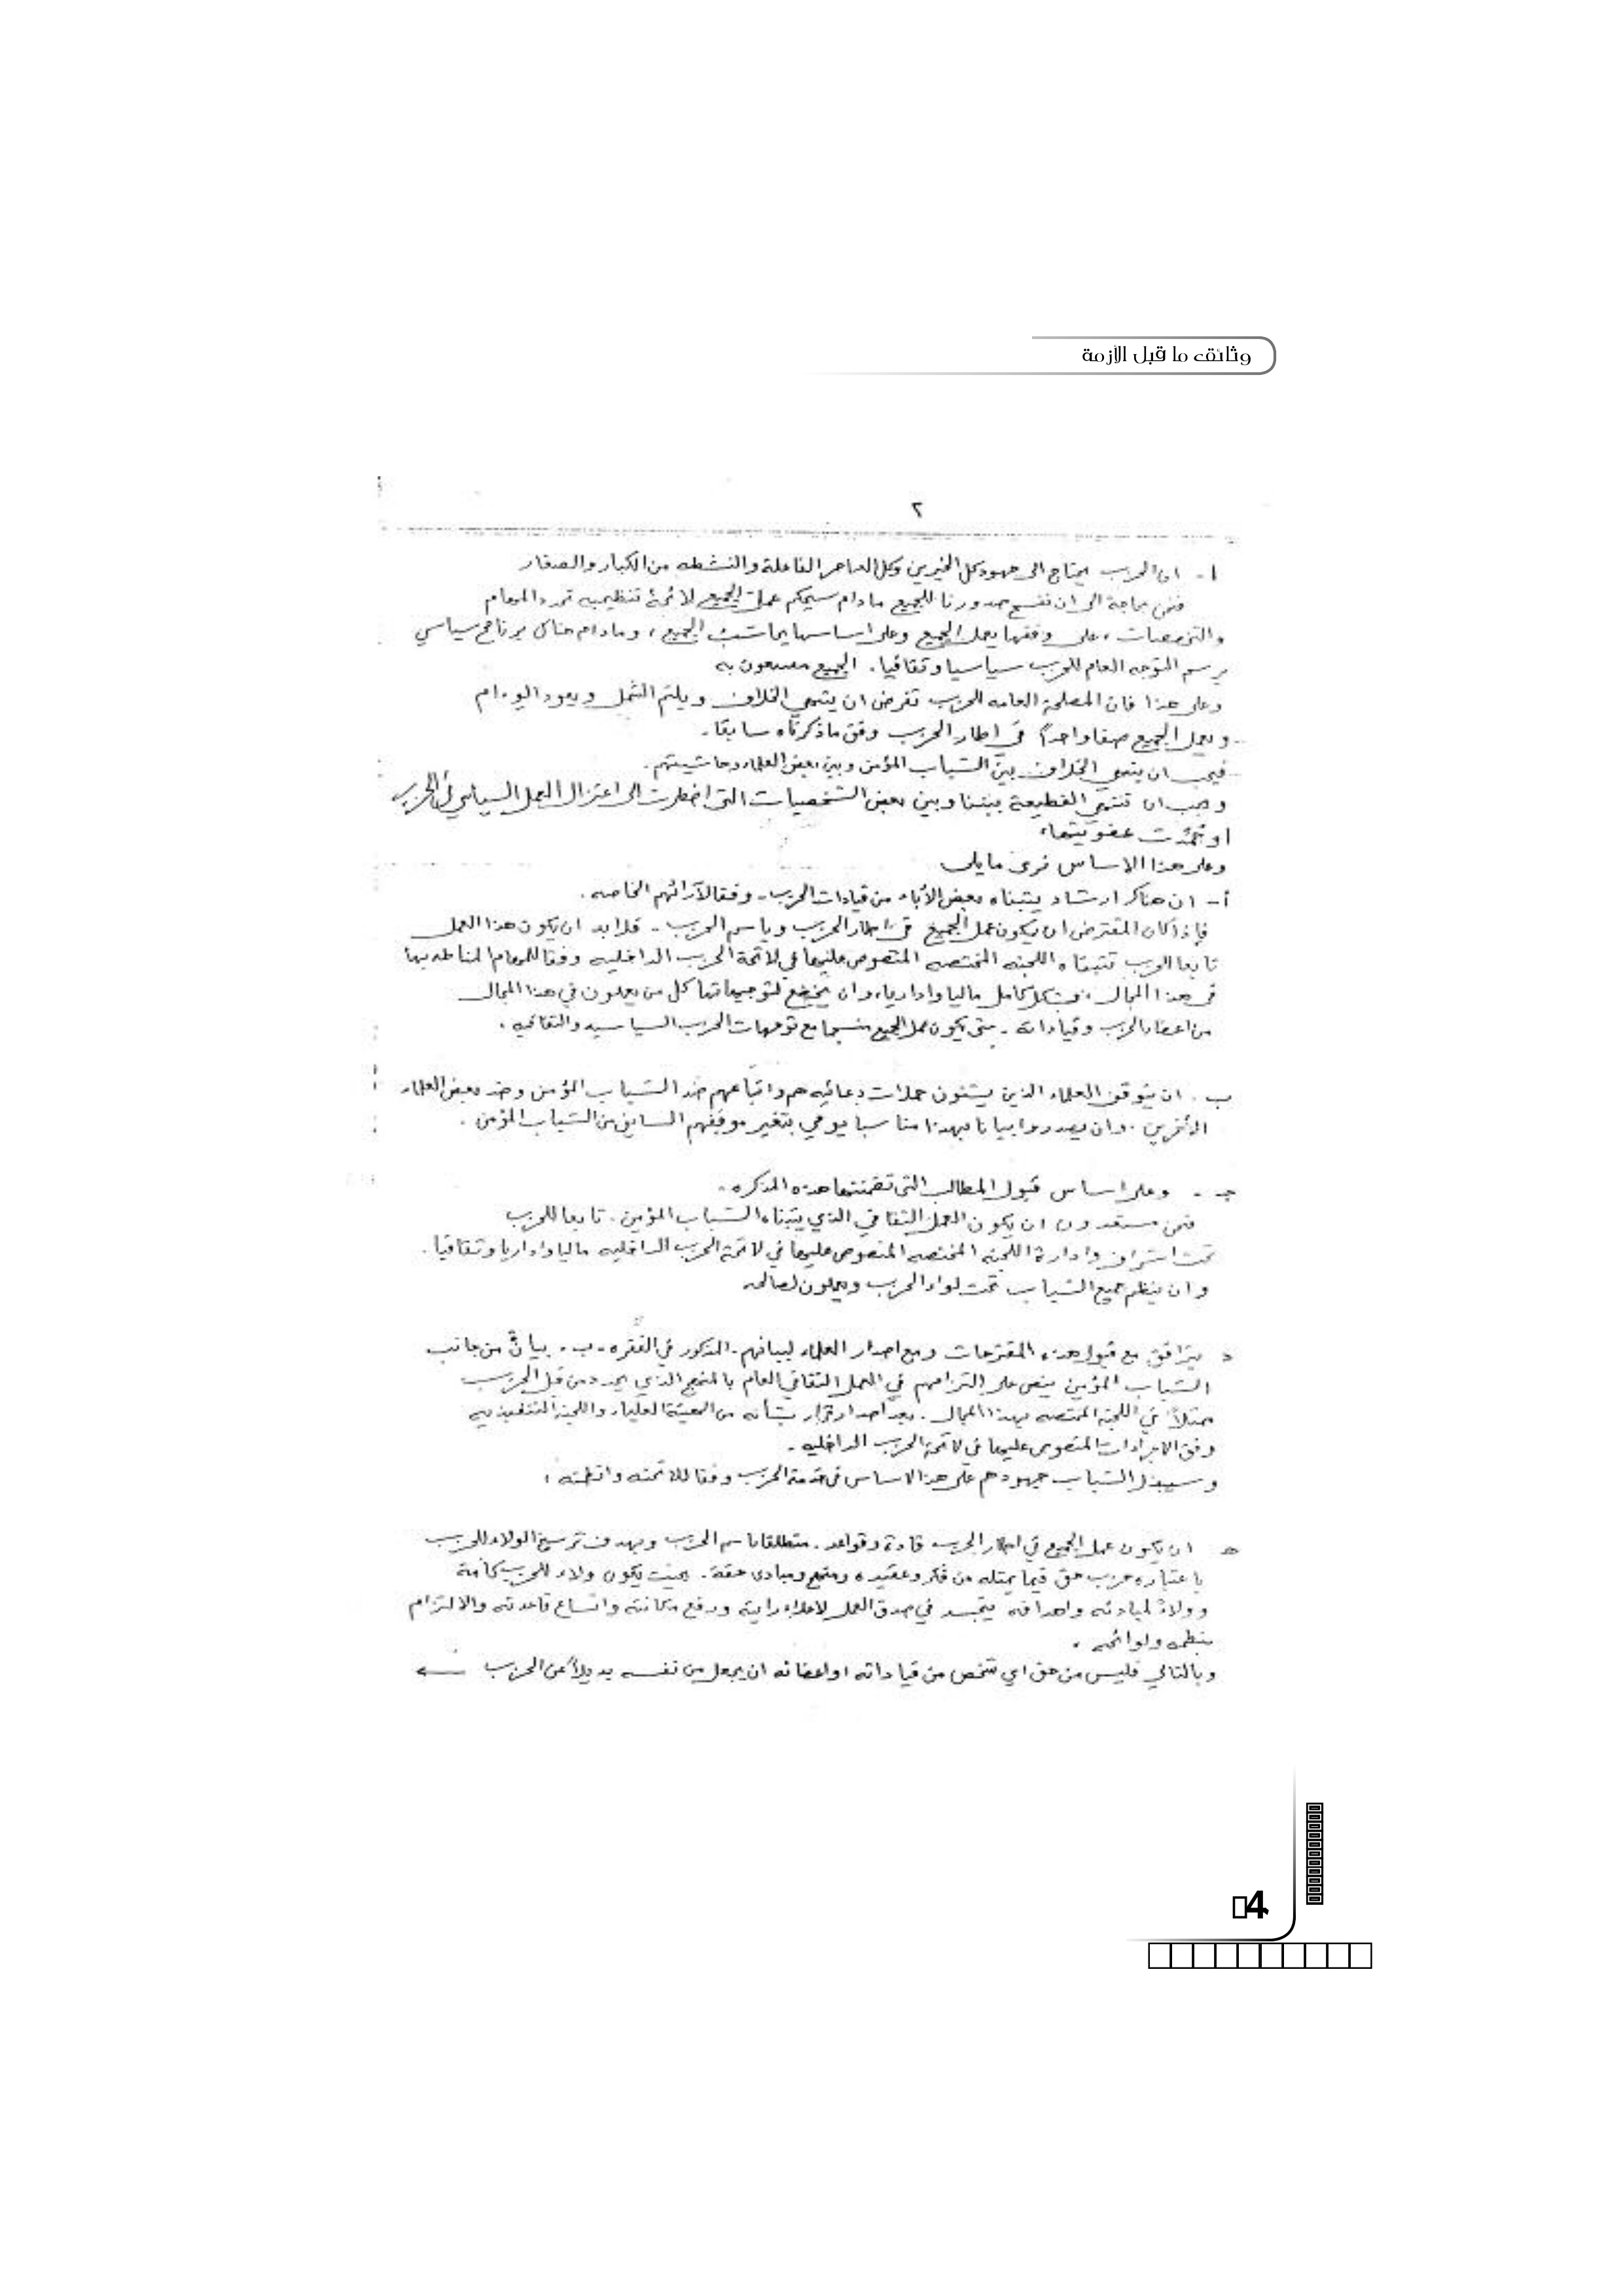 وثائق ما قبل الأزمة
٢
١- ان الحزب يحتاج الى جهود كل الخيرين وكل العناصر الفاعلة والنشطه من الكبار والصغار
فنحن بحاجة الى ان نفسح صدورنا للجميع مادام سيحكم عمل الجميع لائحة تنظيميه تحدد المهام
والتخصصات ، على وفقها يعمل الجميع وعلى اساسها يحاسب الجميع ، ومادام هناك برنامج سياسي
يرسم التوجه العام للحزب سياسيا وثقافيا. الجميع به
وعلى هذا فان المصلحة العامه للحزب تفرض ان ينتهي الخلاف ويلتم الشمل ويعود الوءام
ويعمل الجميع صفا واحداً في إطار الحزب وفق ماذكرناه سابقا.
فيجب ان ينتهي الخلاف بين الشباب المؤمن وبين بعض العلماء وحاشيتهم.
ويجب ان تنتهي القطيعة بيننا وبين بعض الشخصيات التى اضطرت الى اعتزال العمل السياسي في الحزب
او جمدت عضويتها.
وعلى هذا الاساس نرى مايلى
أ- ان هناك ارشاد يتبناه بعض الأباء من قيادات الحزب - وفقا لآرائهم الخاصه.
فإذا كان المفترض ان يكون عمل الجميع في إطار الحزب وباسم الحزب - فلابد ان يكون هذا العمل
تابعا للحزب تتبناه اللجنه المختصه المنصوص عليها في لائحة الحزب الداخليه وفقا للمهام المناطه بها
في هذا المجال ، وبشكل كامل ماليا واداريا، وان يخضع لتوجيهاتها كل من يعملون في هذا المجال
من اعضاء الحزب وقياداته - حتى يكون عمل الجميع منسجما مع توجهات الحزب السياسيه والثقافيه.
ب. ان يتوقف العلماء الذين يشنون حملات دعائيه هم واتباعهم ضد الشباب المؤمن وضد بعض العلماء
الأخرين. وان يصدروا بيانا بهذا مناسبا يوحي بتغير موقفهم السابق من الشباب المؤمن.
جـ - وعلى اساس قبول المطالب التى تضمنتها هذه المذكره.
فنحن مستعدون ان يكون العمل الثقافي الذي يتبناه الشباب المؤمن. تابعا للحزب
تحت اشراف وادارة اللجنه المختصه المنصوص عليها في لائحة الحزب الداخليه ماليا واداريا وثقافيا.
وان ينظم جميع الشباب تحت لواء الحزب ويعملون لصالحه
د يترافق مع قبول هذه المقترحات ومع اصدار العلماء لبيانهم. المذكور في الفقره - ب - بيانٌ من جانب
الشباب المؤمن ينص على التزامهم في العمل الثقافي العام بالمنهج الذي يحدد من قبل الحزب
ممثلاً في اللجنه المختصه بهذا المجال. بعد اصدار قرار بشأنه من الهيئة العليا، واللجنة التنفيذيه
وفق الاجراءات المنصوص عليها في لائحة الحزب الداخليه.
وسيبذل الشباب جهودهم على هذا الاساس في خدمة الحزب وفقا للائحته وانظمته ،
هـ ان يكون عمل الجميع في إطار الحزب قادة وقواعد. منطلقا باسم الحزب وبهدف ترسيخ الولاء للحزب
باعتباره حزب حق فيما يمثله من فكر وعقيده ومنهج ومبادئ حقة. بحيث يكون ولاء للحزب كافة
وولاءً لمبادئه واهدافه يتجسد في صدق العمل لاعلاء رايته ورفع مكانته واتساع قاعدته والالتزام
بنظمه ولوائحه.
وبالتالي فليس من حق اي شخص من قياداته او اعضائه ان يجعل من نفسه بديلاً عن الحزب
4